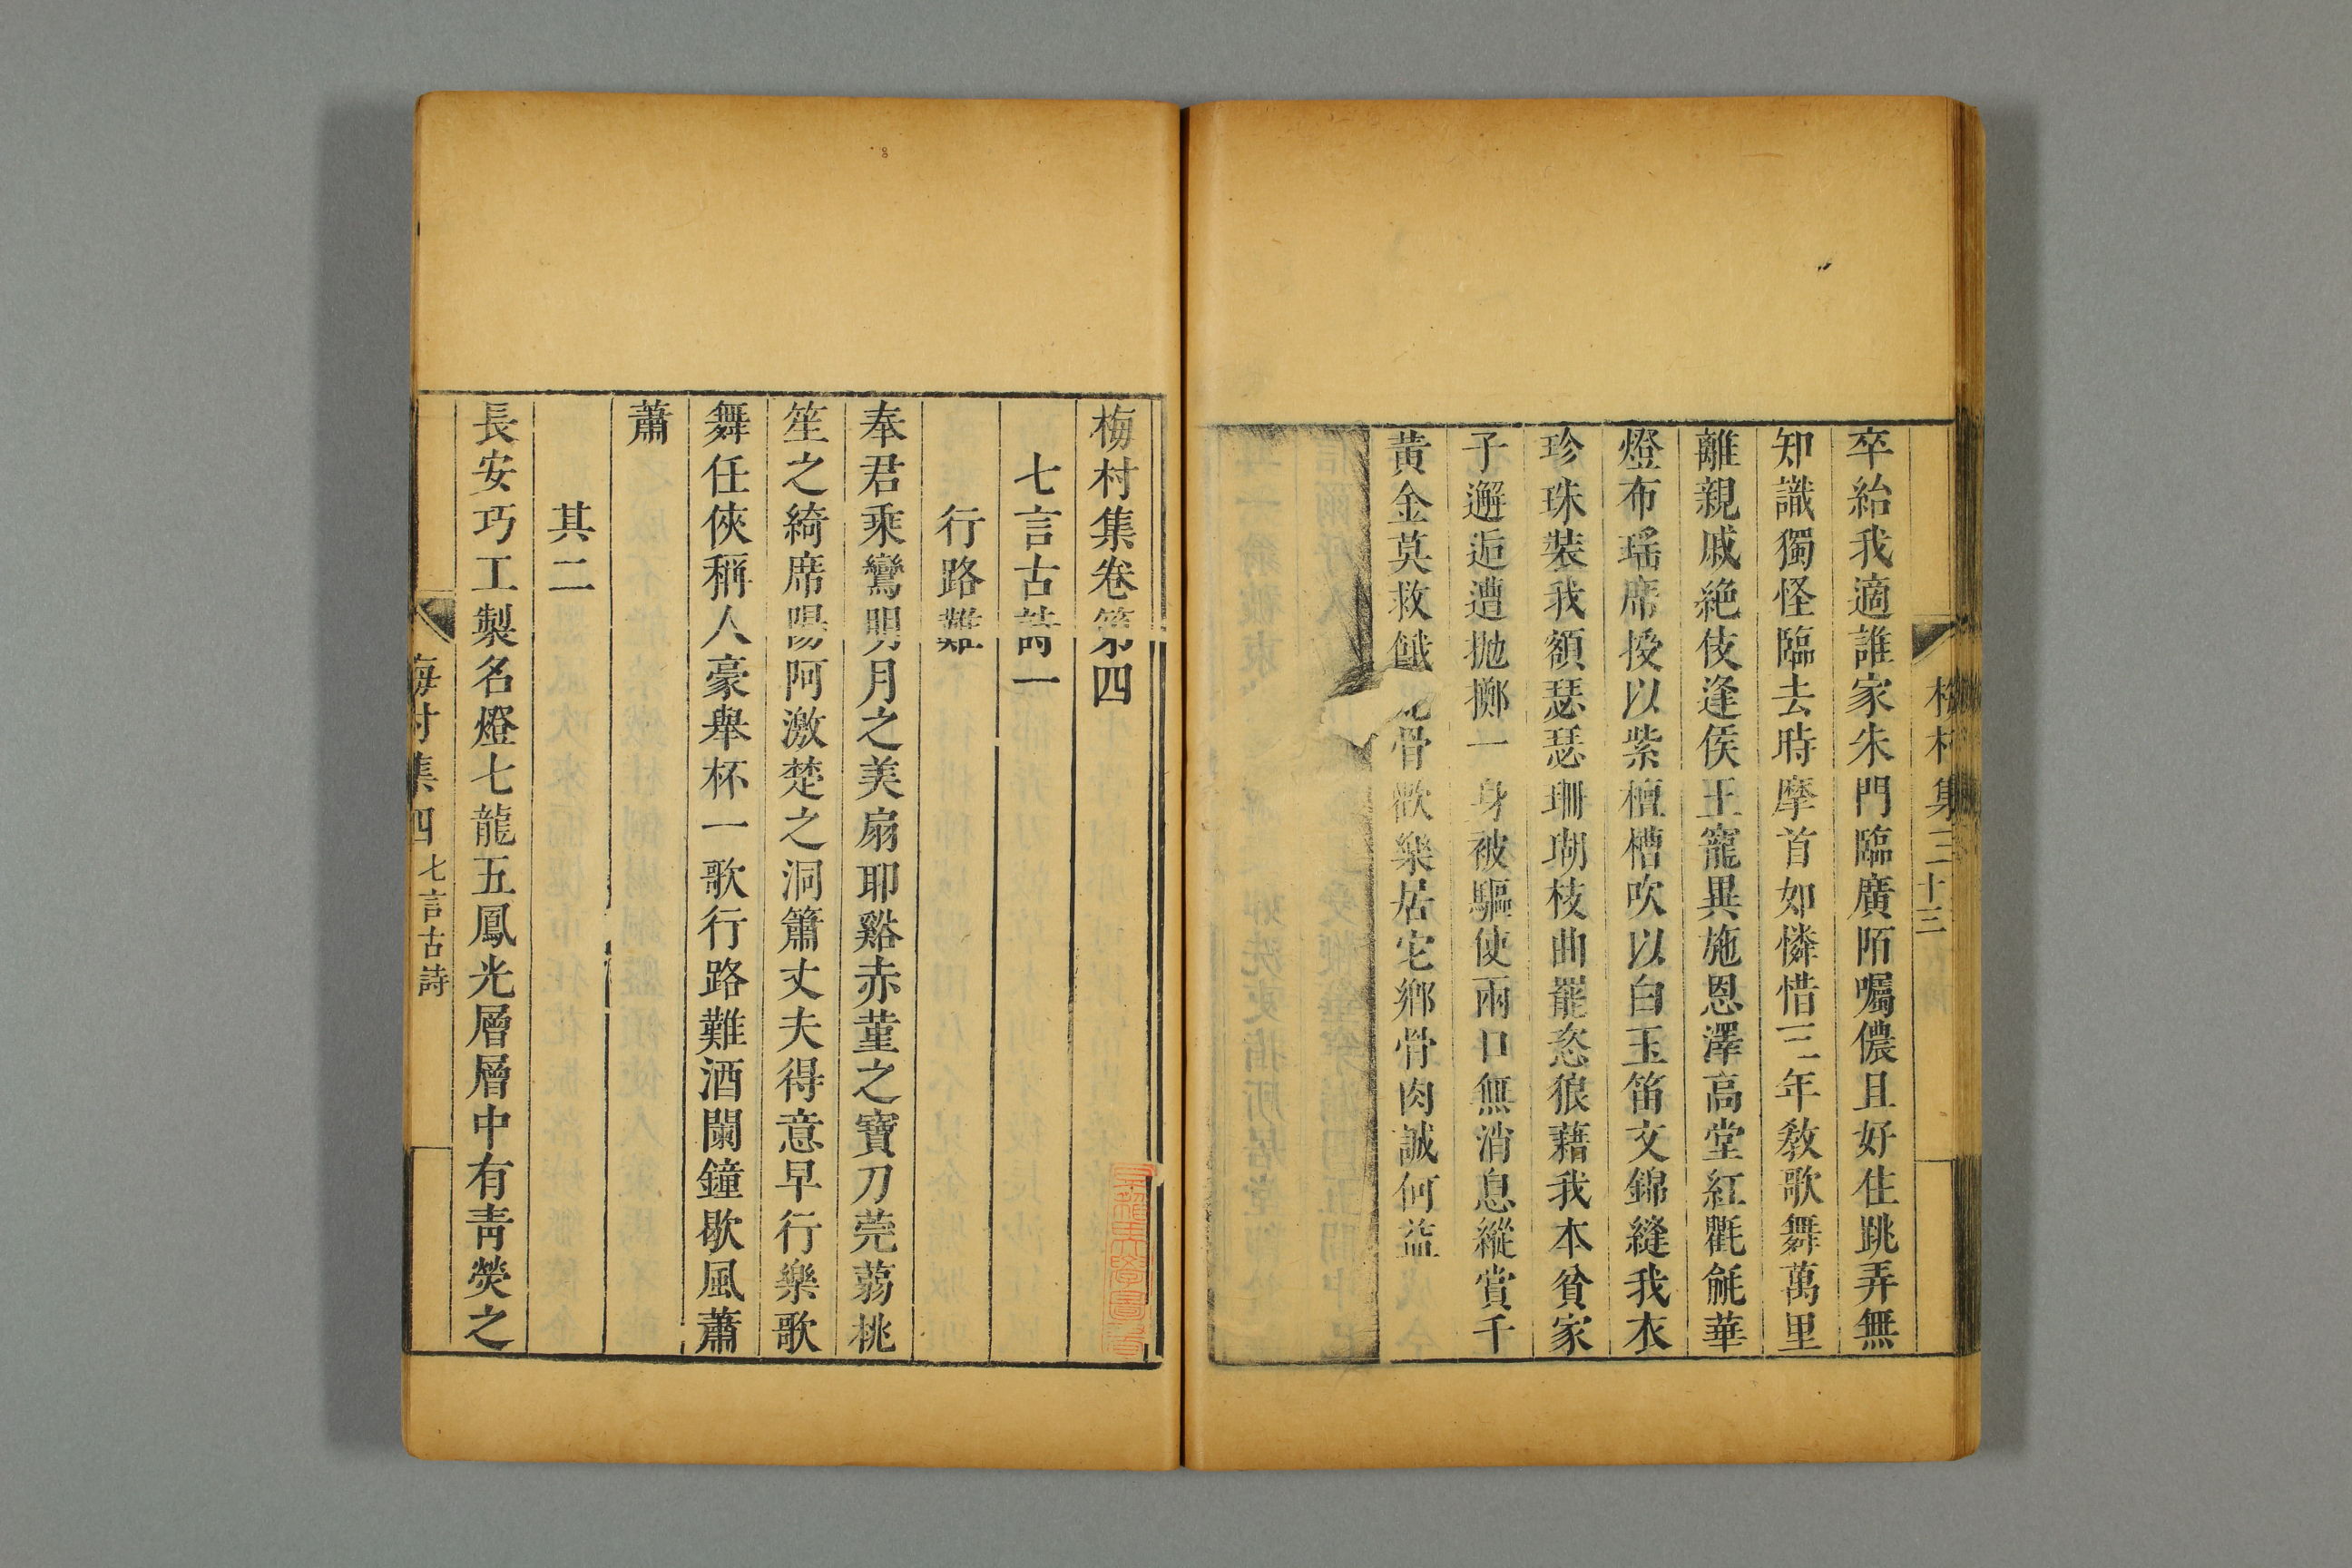 梅村集三
十三
卒紿我適誰家朱門臨廣陌囑儂且好住跳弄無
知識獨怪臨去時摩首如憐惜三年教歌舞萬里
離親戚絶伎逢侯王寵異施恩澤高堂紅氍毹華
燈布瑤席授以紫檀槽吹以白玉笛文錦縫我衣
珍珠裝我額瑟瑟珊瑚枝曲罷恣狼藉我本貧家
子邂逅遭拋擲一身被驅使兩口無消息縱賞千
黃金莫救餓死骨歡樂居它鄉骨肉誠何益
梅村集卷第四
七言古詩一
行路難
奉君乘鸞明月之美扇耶谿赤堇之寶刀莞蒻桃
笙之綺席陽阿激楚之洞簫丈夫得意早行樂歌
舞任俠稱人豪舉杯一歌行路難酒闌鐘歇風蕭
蕭
其二
長安巧工製名燈七龍五鳳光層層中有青熒之
梅村集四
七言古詩